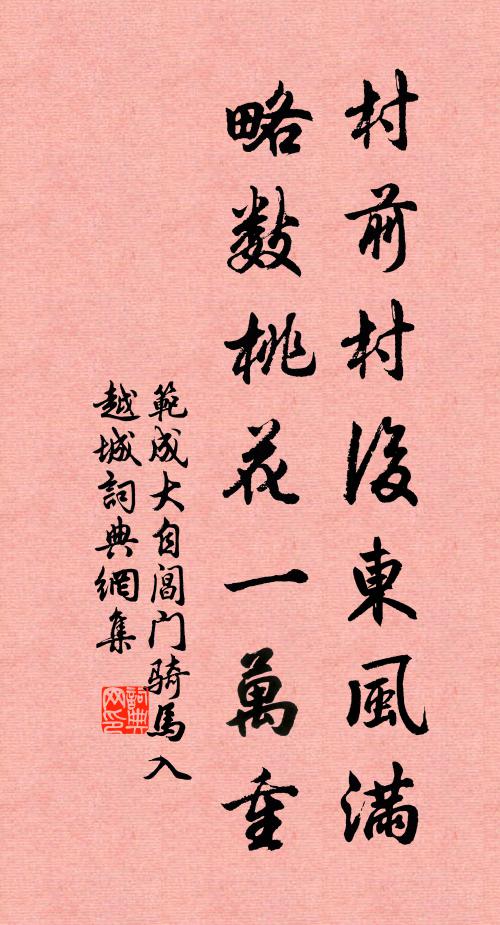 村前村後東風滿
略數桃花一萬重
範成大自閶门骑馬入
越城詞典網集
詞典网印